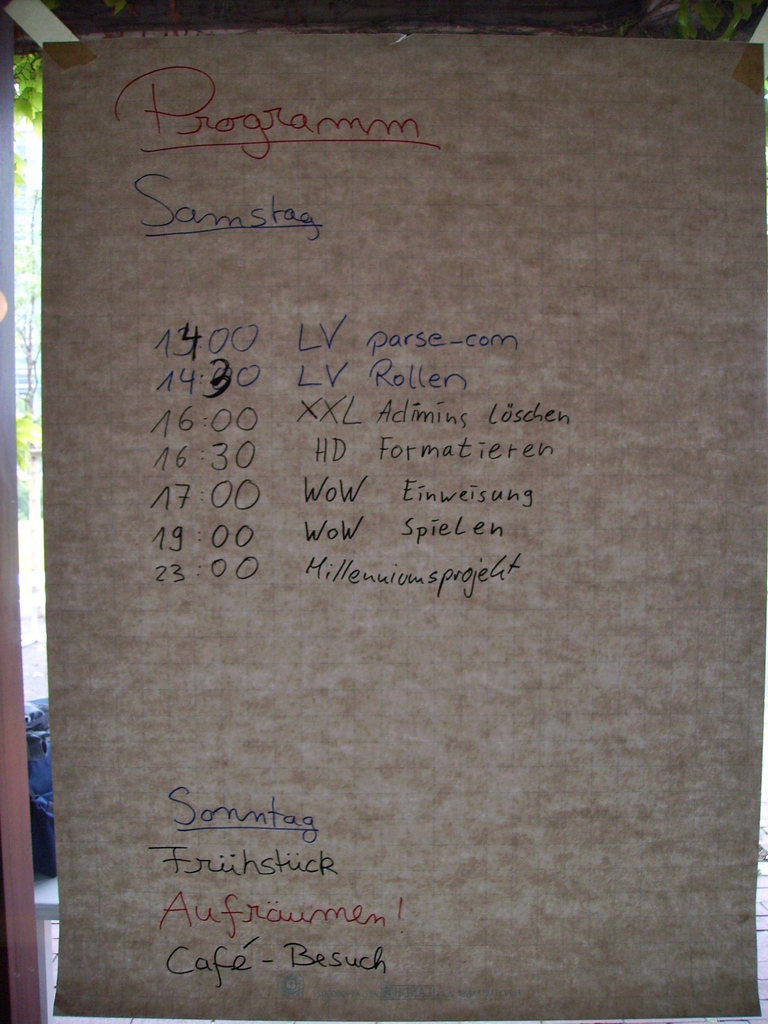 Programm
Samstag
14:00 LV parse-com
14:30 LV Rollen
16:00 XXL Admins löschen
16:30 HD Formatieren
17:00 WoW Einweisung
19:00 WoW Spielen
23:00 Millenniumsprojekt
Sonntag
Frühstück
Aufräumen!
Café-Besuch